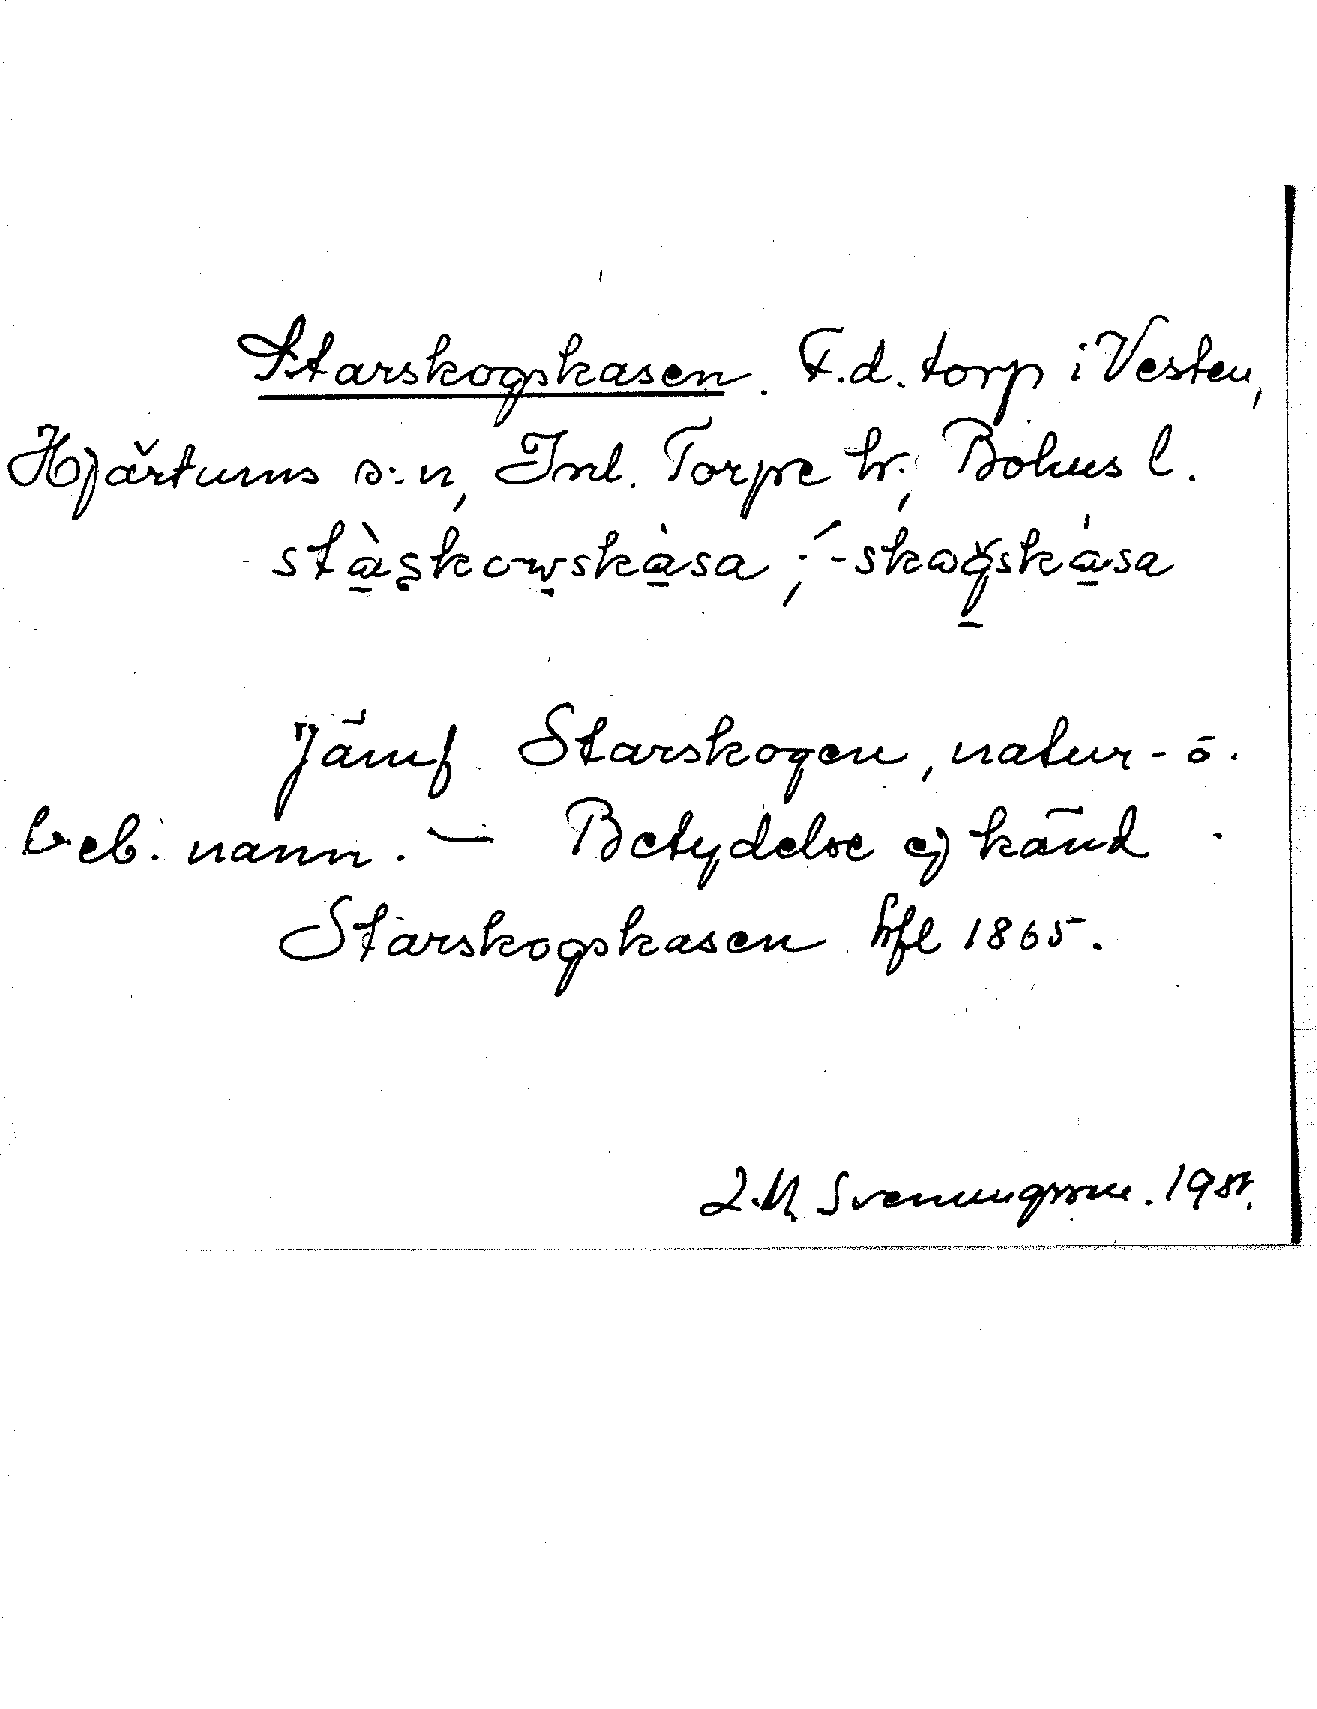 Starskogskasen. F.d. torp i Vesten,
Hjärtums s:n, Inl. Torpe hr, Bohus l.
stàskowskàsa, -skogskàsa
Jämf Starskogen, natur- o.
beb. namn. — Betydelse ej känd
Starskogskasen hfl 1865.
Svenungsson. 1981.